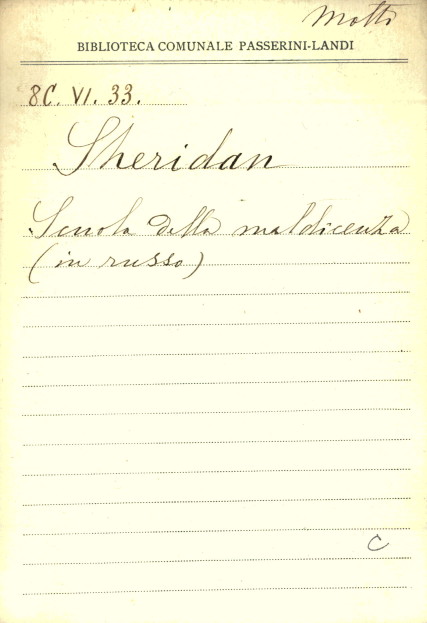 Motti
BIBLIOTECA COMUNALE PASSERINI-LANDI
8C. VI. 33.
Sheridan
Scuola della maldicenza
(in russo)
C